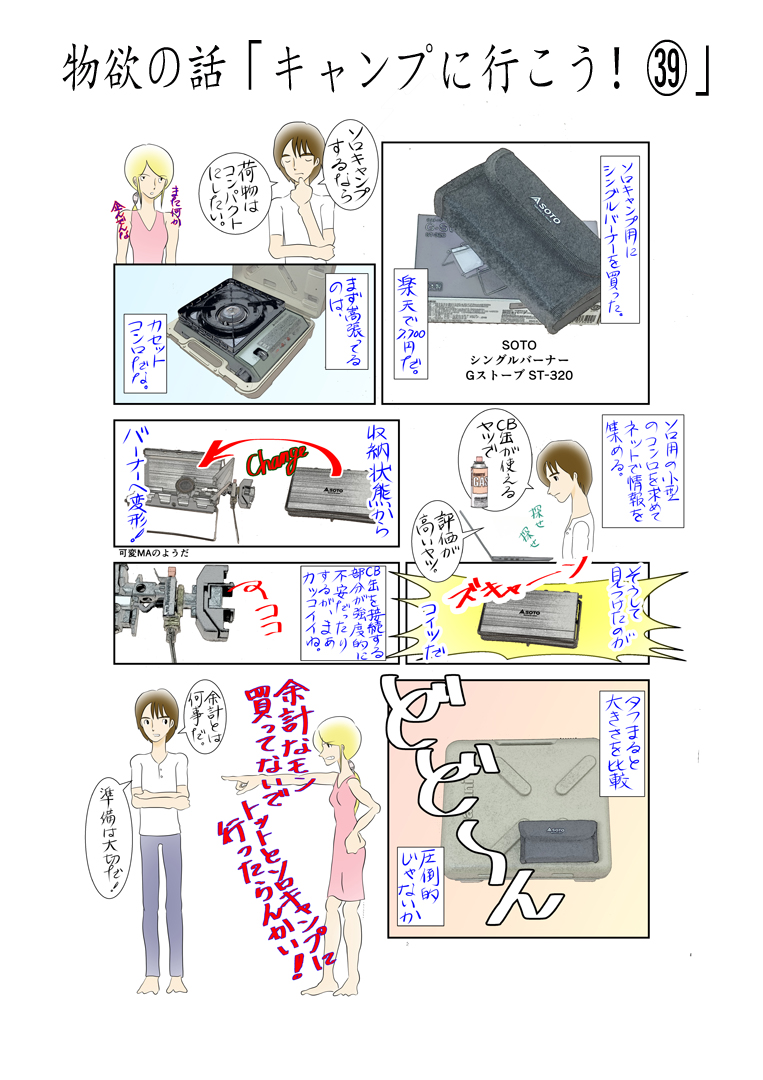 物欲の話「キャンプに行こう！㊴」
ソロキャンプ用に
シングルバーナーを買った。
SOTO
楽天で
7,700
円だ。
SOTO
シングルバーナー
Gストーブ ST-320
ソロキャンプ
するなら
荷物は
コンパクト
にしたい。
また何か
まず嵩張ってる
のは、
カセット
コンロだな。
ソロ用の小型
のコンロを求めて
ネットで情報を
集める。
CB缶が使える
ヤツで
GAS
探せ
探せ
評価が
高いヤツ!
収納状態から
Change
SOTO
バーナーへ変形!!
可変MAのようだ
そうして
見つけたのが
ズキャーン
SOTO
コイツだ
CB缶を接続する
部分が強度的に
不安だったり
するが、まぁ
カッコイイね。
ココ
タフまると
大きさを比較
どど〜ん
SOTO
圧倒的
じゃないか
余計なモン
買ってないで
トットとソロキャンプに
行ったらんかい!
余計とは
何事だ。
準備は大切だ!